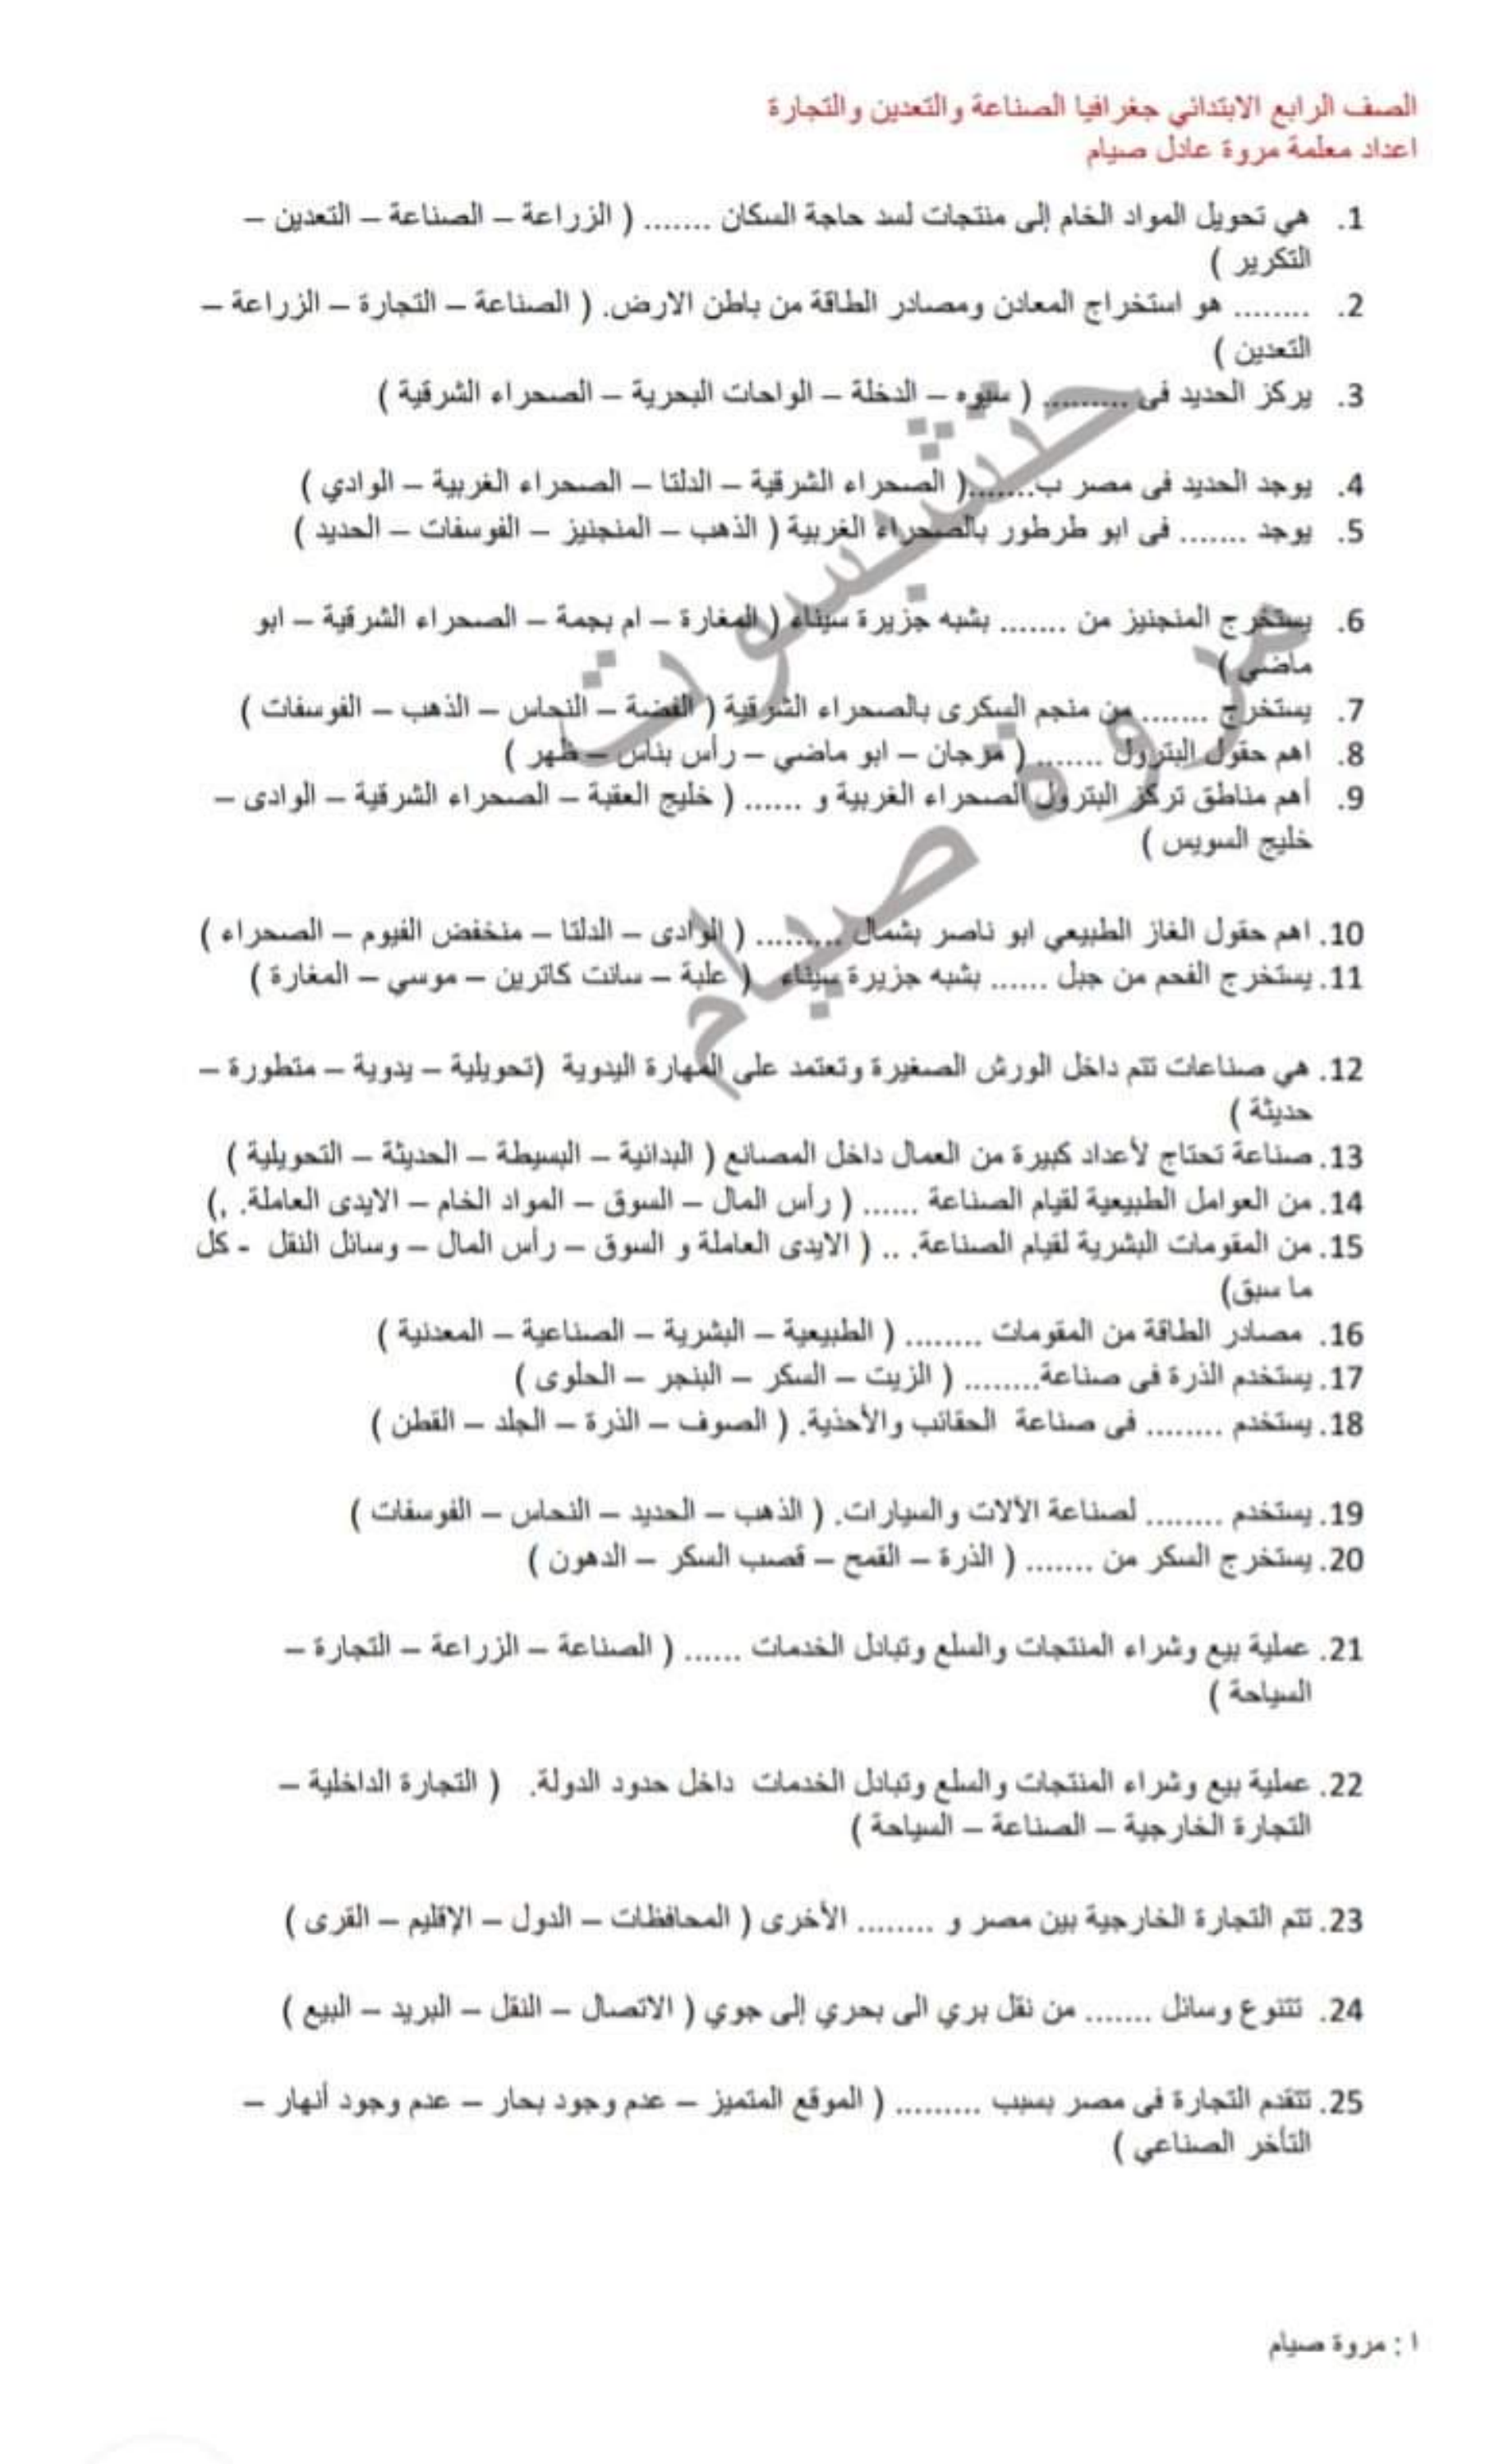 الصف الرابع الابتدائي جغرافيا الصناعة والتعدين والتجارة
اعداد معلمة مروة عادل صيام
1. هي تحويل المواد الخام إلى منتجات لسد حاجة السكان ....... ( الزراعة – الصناعة – التعدين –
التكرير )
2. ........ هو استخراج المعادن ومصادر الطاقة من باطن الارض. ( الصناعة – التجارة – الزراعة –
التعدين )
3. يركز الحديد فى ......... ( سيوه – الدخلة – الواحات البحرية – الصحراء الشرقية )
4. يوجد الحديد فى مصر ب.......( الصحراء الشرقية – الدلتا – الصحراء الغربية – الوادي )
5. يوجد ....... فى ابو طرطور بالصحراء الغربية ( الذهب – المنجنيز – الفوسفات – الحديد )
6. يستخرج المنجنيز من ....... بشبه جزيرة سيناء ( المغارة – ام بجمة – الصحراء الشرقية – ابو
ماضي )
7. يستخرج ....... من منجم السكرى بالصحراء الشرقية ( الفضة – النحاس – الذهب – الفوسفات )
8. اهم حقول البترول ....... ( مرجان – ابو ماضي – رأس بناس – ظهر )
9. أهم مناطق تركز البترول الصحراء الغربية و ...... ( خليج العقبة – الصحراء الشرقية – الوادى –
خليج السويس )
10. اهم حقول الغاز الطبيعي ابو ناصر بشمال ......... ( الوادى – الدلتا – منخفض الفيوم – الصحراء )
11. يستخرج الفحم من جبل ...... بشبه جزيرة سيناء ( علبة – سانت كاترين – موسي – المغارة )
12. هي صناعات تتم داخل الورش الصغيرة وتعتمد على المهارة اليدوية (تحويلية – يدوية – متطورة –
حديثة )
13. صناعة تحتاج لأعداد كبيرة من العمال داخل المصانع ( البدائية – البسيطة – الحديثة – التحويلية )
14. من العوامل الطبيعية لقيام الصناعة ...... ( رأس المال – السوق – المواد الخام – الايدى العاملة. ,)
15. من المقومات البشرية لقيام الصناعة. .. ( الايدى العاملة و السوق – رأس المال – وسائل النقل - كل
ما سبق)
16. مصادر الطاقة من المقومات ........ ( الطبيعية – البشرية – الصناعية – المعدنية )
17. يستخدم الذرة فى صناعة........ ( الزيت – السكر – البنجر – الحلوى )
18. يستخدم ........ فى صناعة الحقائب والأحذية. ( الصوف – الذرة – الجلد – القطن )
19. يستخدم ........ لصناعة الألات والسيارات. ( الذهب – الحديد – النحاس – الفوسفات )
20. يستخرج السكر من ....... ( الذرة – القمح – قصب السكر – الدهون )
21. عملية بيع وشراء المنتجات والسلع وتبادل الخدمات ...... ( الصناعة – الزراعة – التجارة –
السياحة )
22. عملية بيع وشراء المنتجات والسلع وتبادل الخدمات داخل حدود الدولة. ( التجارة الداخلية –
التجارة الخارجية – الصناعة – السياحة )
23. تتم التجارة الخارجية بين مصر و ........ الأخرى ( المحافظات – الدول – الإقليم – القرى )
24. تتنوع وسائل ....... من نقل بري الى بحري إلى جوي ( الاتصال – النقل – البريد – البيع )
25. تتقدم التجارة فى مصر بسبب ......... ( الموقع المتميز – عدم وجود بحار – عدم وجود أنهار –
التأخر الصناعي )
حتشبسوت
مروة صيام
ا : مروة صيام